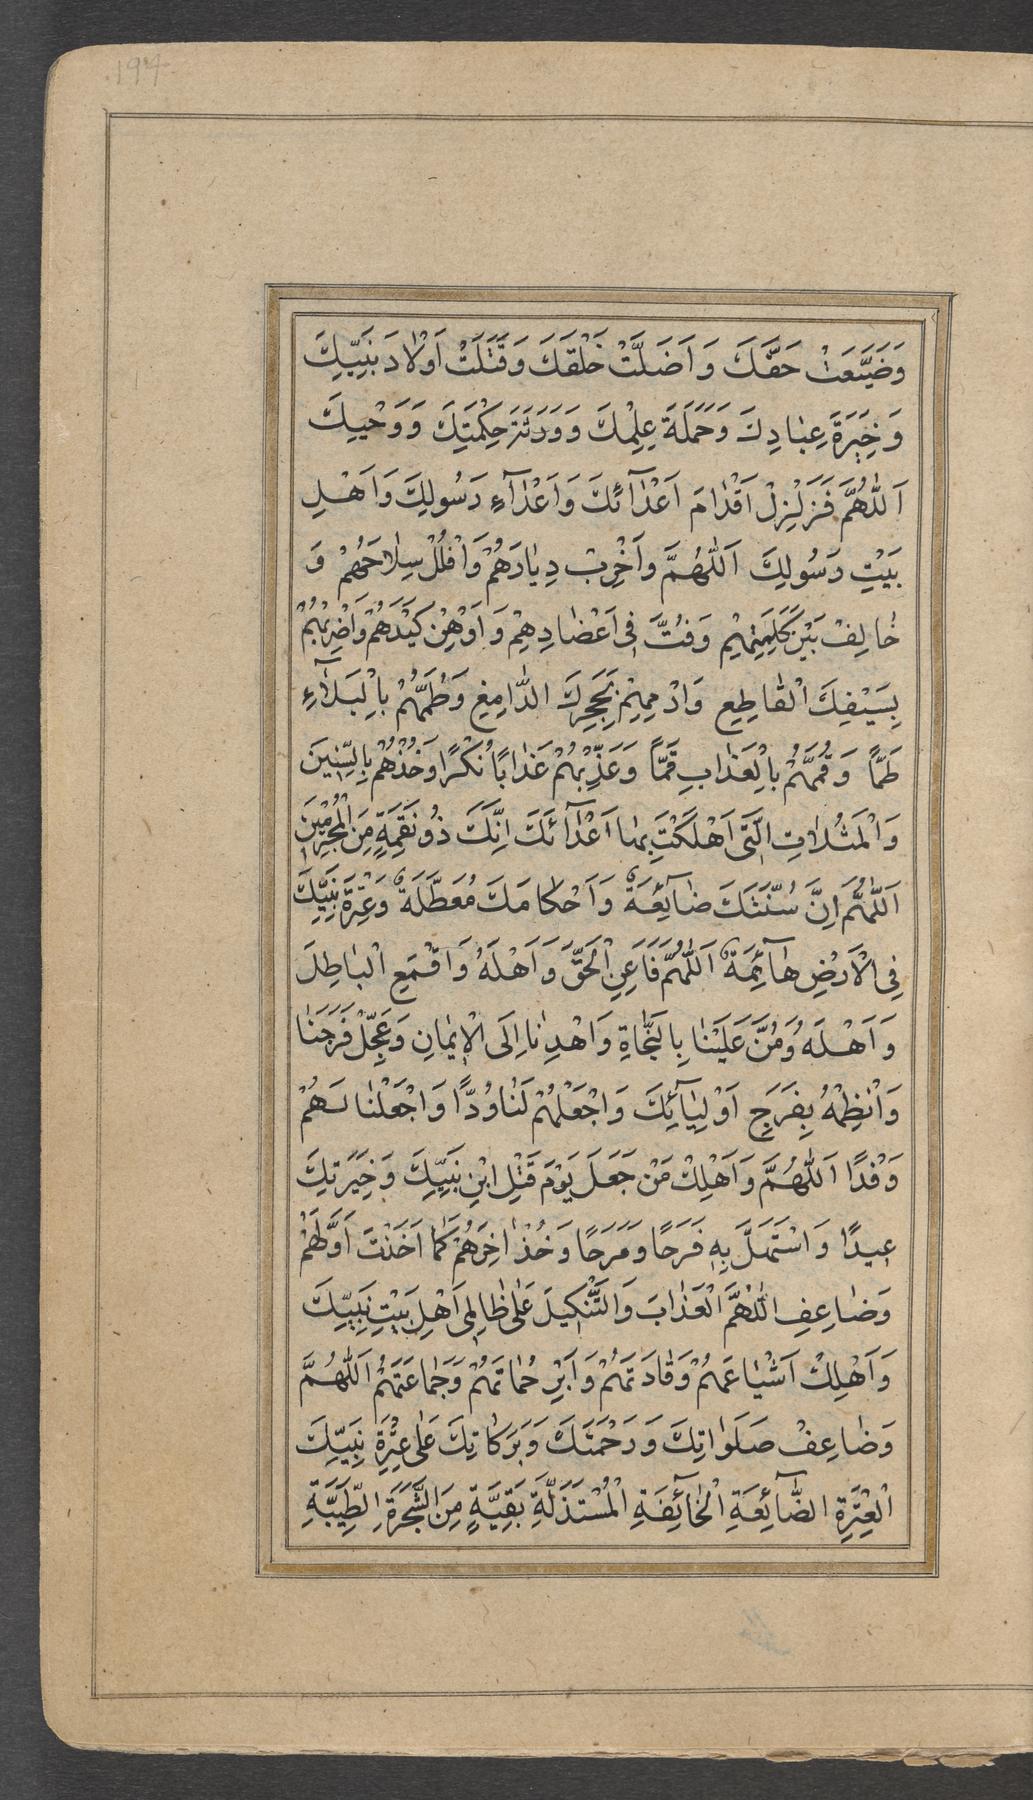 وَضَيَّعَتْ حَقَّكَ وَاَضَلَّتْ خَلْقَكَ وَقَتَلَتْ اَوْلادَ نَبِيِّكَ
وَخِيَرَةَ عِبٰادِكَ وَحَمَلَةَ عِلِمْكَ وَوَرَثَةَ حِكْمَتِكَ وَوَحْيِكَ
اَللّٰهُمَّ فَزَلْزِلْ اَقْدٰامَ اَعْدٰآئِكَ وَاَعْدٰآءِ رَسُولِكَ وَاَهْلِ
بَيْتِ رَسُولِكَ اَللّٰهُمَّ وَاَخْرِبْ دِيٰارَهُمْ وَافْلُلْ سِلٰاحَهُمْ وَ
خٰالِفْ بَيْنَ كَلِمَتِهِمْ وَفُتَّ فِى اَعْضٰادِهِمْ وَاَوْهِنْ كَيْدَهُمْ وَاضْرِبْهُمْ
بِسَيْفِكَ الْقٰاطِعِ وَارْمِهِمْ بِحَجَرِكَ الدّٰامِغِ وَطُمَّهُمْ بِالْبَلٰآءِ
طَمًّا وَقُمَّهُمْ بِالْعَذٰابِ قَمًّا وَعَذِّبْهُمْ عَذٰابًا نُكْرًا وَخُذْهُمْ بِالسِّنِينَ
وَالْمَثُلاتِ الَّتِى اَهْلَكْتَ بِهٰا اَعْدٰآئَكَ اِنَّكَ ذُو نَقِمَةٍ مِنَ الْمُجْرِمِينَ
اَللّٰهُمَّ اِنَّ سُنَّتَكَ ضٰآئِعَةٌ وَاَحْكٰامَكَ مُعَطَّلَةٌ وَعِتْرَةَ نَبِيِّكَ
فِى الْاَرْضِ هٰآئِمَةٌ اَللّٰهُمَّ فَاَعِنِ الْحَقَّ وَاَهْلَهُ وَاقْمَعِ الْبٰاطِلَ
وَاَهْلَهُ وَمُنَّ عَلَيْنٰا بِالنَّجٰاةِ وَاهْدِنٰا اِلَى الْاِيمٰانِ وَعَجِّلْ فَرَجَنٰا
وَانْظِمْهُ بِفَرَجِ اَوْلِيٰآئِكَ وَاجْعَلْهُمْ لَنٰا وُدًّا وَاجْعَلْنٰا لَهُمْ
وَفْدًا اَللّٰهُمَّ وَاَهْلِكْ مَنْ جَعَلَ يَوْمَ قَتْلِ ابْنِ نَبِيِّكَ وَخِيَرَتِكَ
عِيدًا وَاسْتَهَلَّ بِهِ فَرَحًا وَمَرَحًا وَخُذْ اٰخِرَهُمْ كَمٰا اَخَذْتَ اَوَّلَهُمْ
وَضٰاعِفِ اللّٰهُمَّ الْعَذٰابَ وَالتَّنْكِيلَ عَلٰى ظٰالِمِى اَهْلِ بَيْتِ نَبِيِّكَ
وَاَهْلِكْ اَشْيٰاعَهُمْ وَقٰادَتَهُمْ وَاَبِرْ حُمٰاتَهُمْ وَجَمٰاعَتَهُمْ اَللّٰهُمَّ
وَضٰاعِفْ صَلَوٰاتِكَ وَرَحْمَتَكَ وَبَرَكٰاتِكَ عَلٰى عِتْرَةِ نَبِيِّكَ
الْعِتْرَةِ الضّٰآئِعَةِ الْخٰآئِفَةِ الْمُسْتَذَلَّةِ بَقِيَّةٍ مِنَ الشَّجَرَةِ الطَّيِّبَةِ